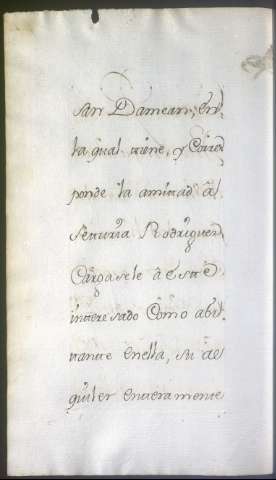 San Damean; en
la qual tiene, y Corres
ponde la amitad âl
Rodriguez
Cargasele â este
interesado Como abi
tante enella, su al
quiler enteramente